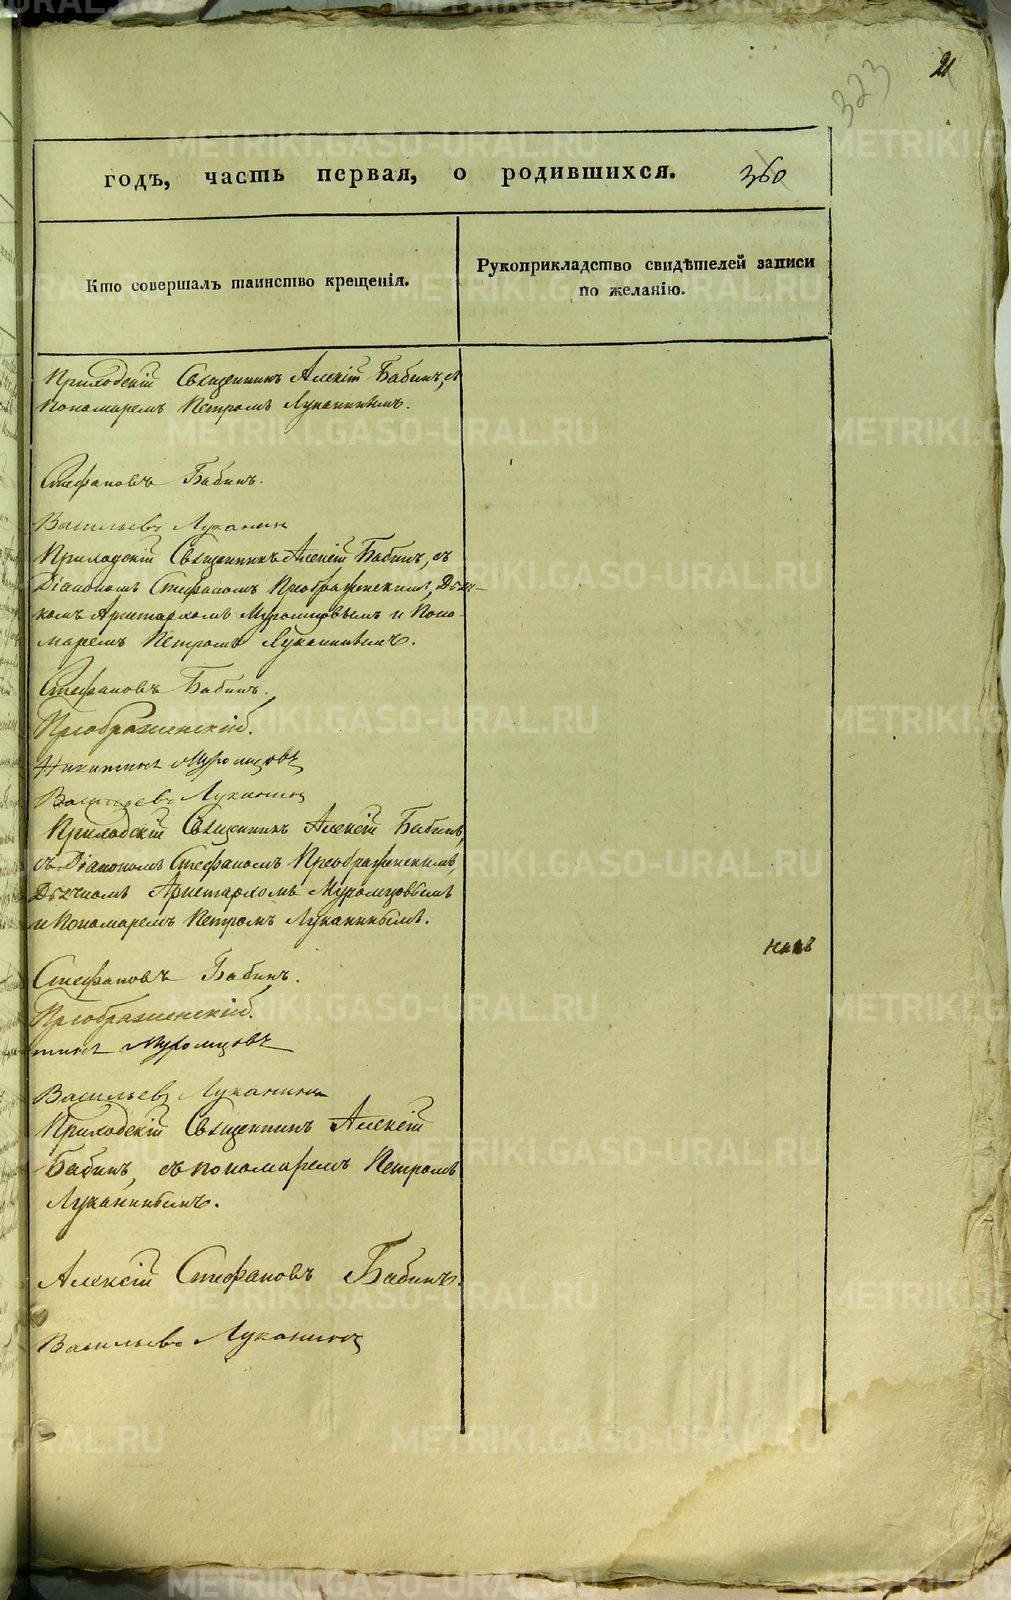 21
323
годъ, часть первая, о родившихся. 360
Кто совершалъ таинство крещенія.
Рукоприкладство свидѣтелей записи
по желанію.
Приходскій Священникъ Алексій Бабинъ, съ
пономаремъ Петромъ Луканинымъ.
Стефановъ Бабинъ.
Васильевъ Луканин
Приходскій Священникъ Алексій Бабинъ, съ
Діакономъ Стефаномъ Преображенскимъ, Дьяч-
комъ Аристархомъ Муромцовымъ и Поно-
маремъ Петромъ Луканинымъ.
Стефановъ Бабинъ.
Преображенскій.
Никитинъ Муромцовъ
Васильевъ Луканинъ
Приходскій Священникъ Алексій Бабинъ,
съ Діакономъ Стефаномъ Преображенскимъ,
Дьячкомъ Аристархомъ Муромцовымъ
и Пономаремъ Петромъ Луканинымъ.
Стефановъ Бабинъ.
Преображенскій.
тинъ Муромцовъ
Васильевъ Луканинъ
Приходскій Священникъ Алексій
Бабинъ, съ пономаремъ Петромъ
Луканинымъ.
Алексій Стефановъ Бабинъ.
Васильевъ Луканинъ
METRIKI.GASO-URAL.RU